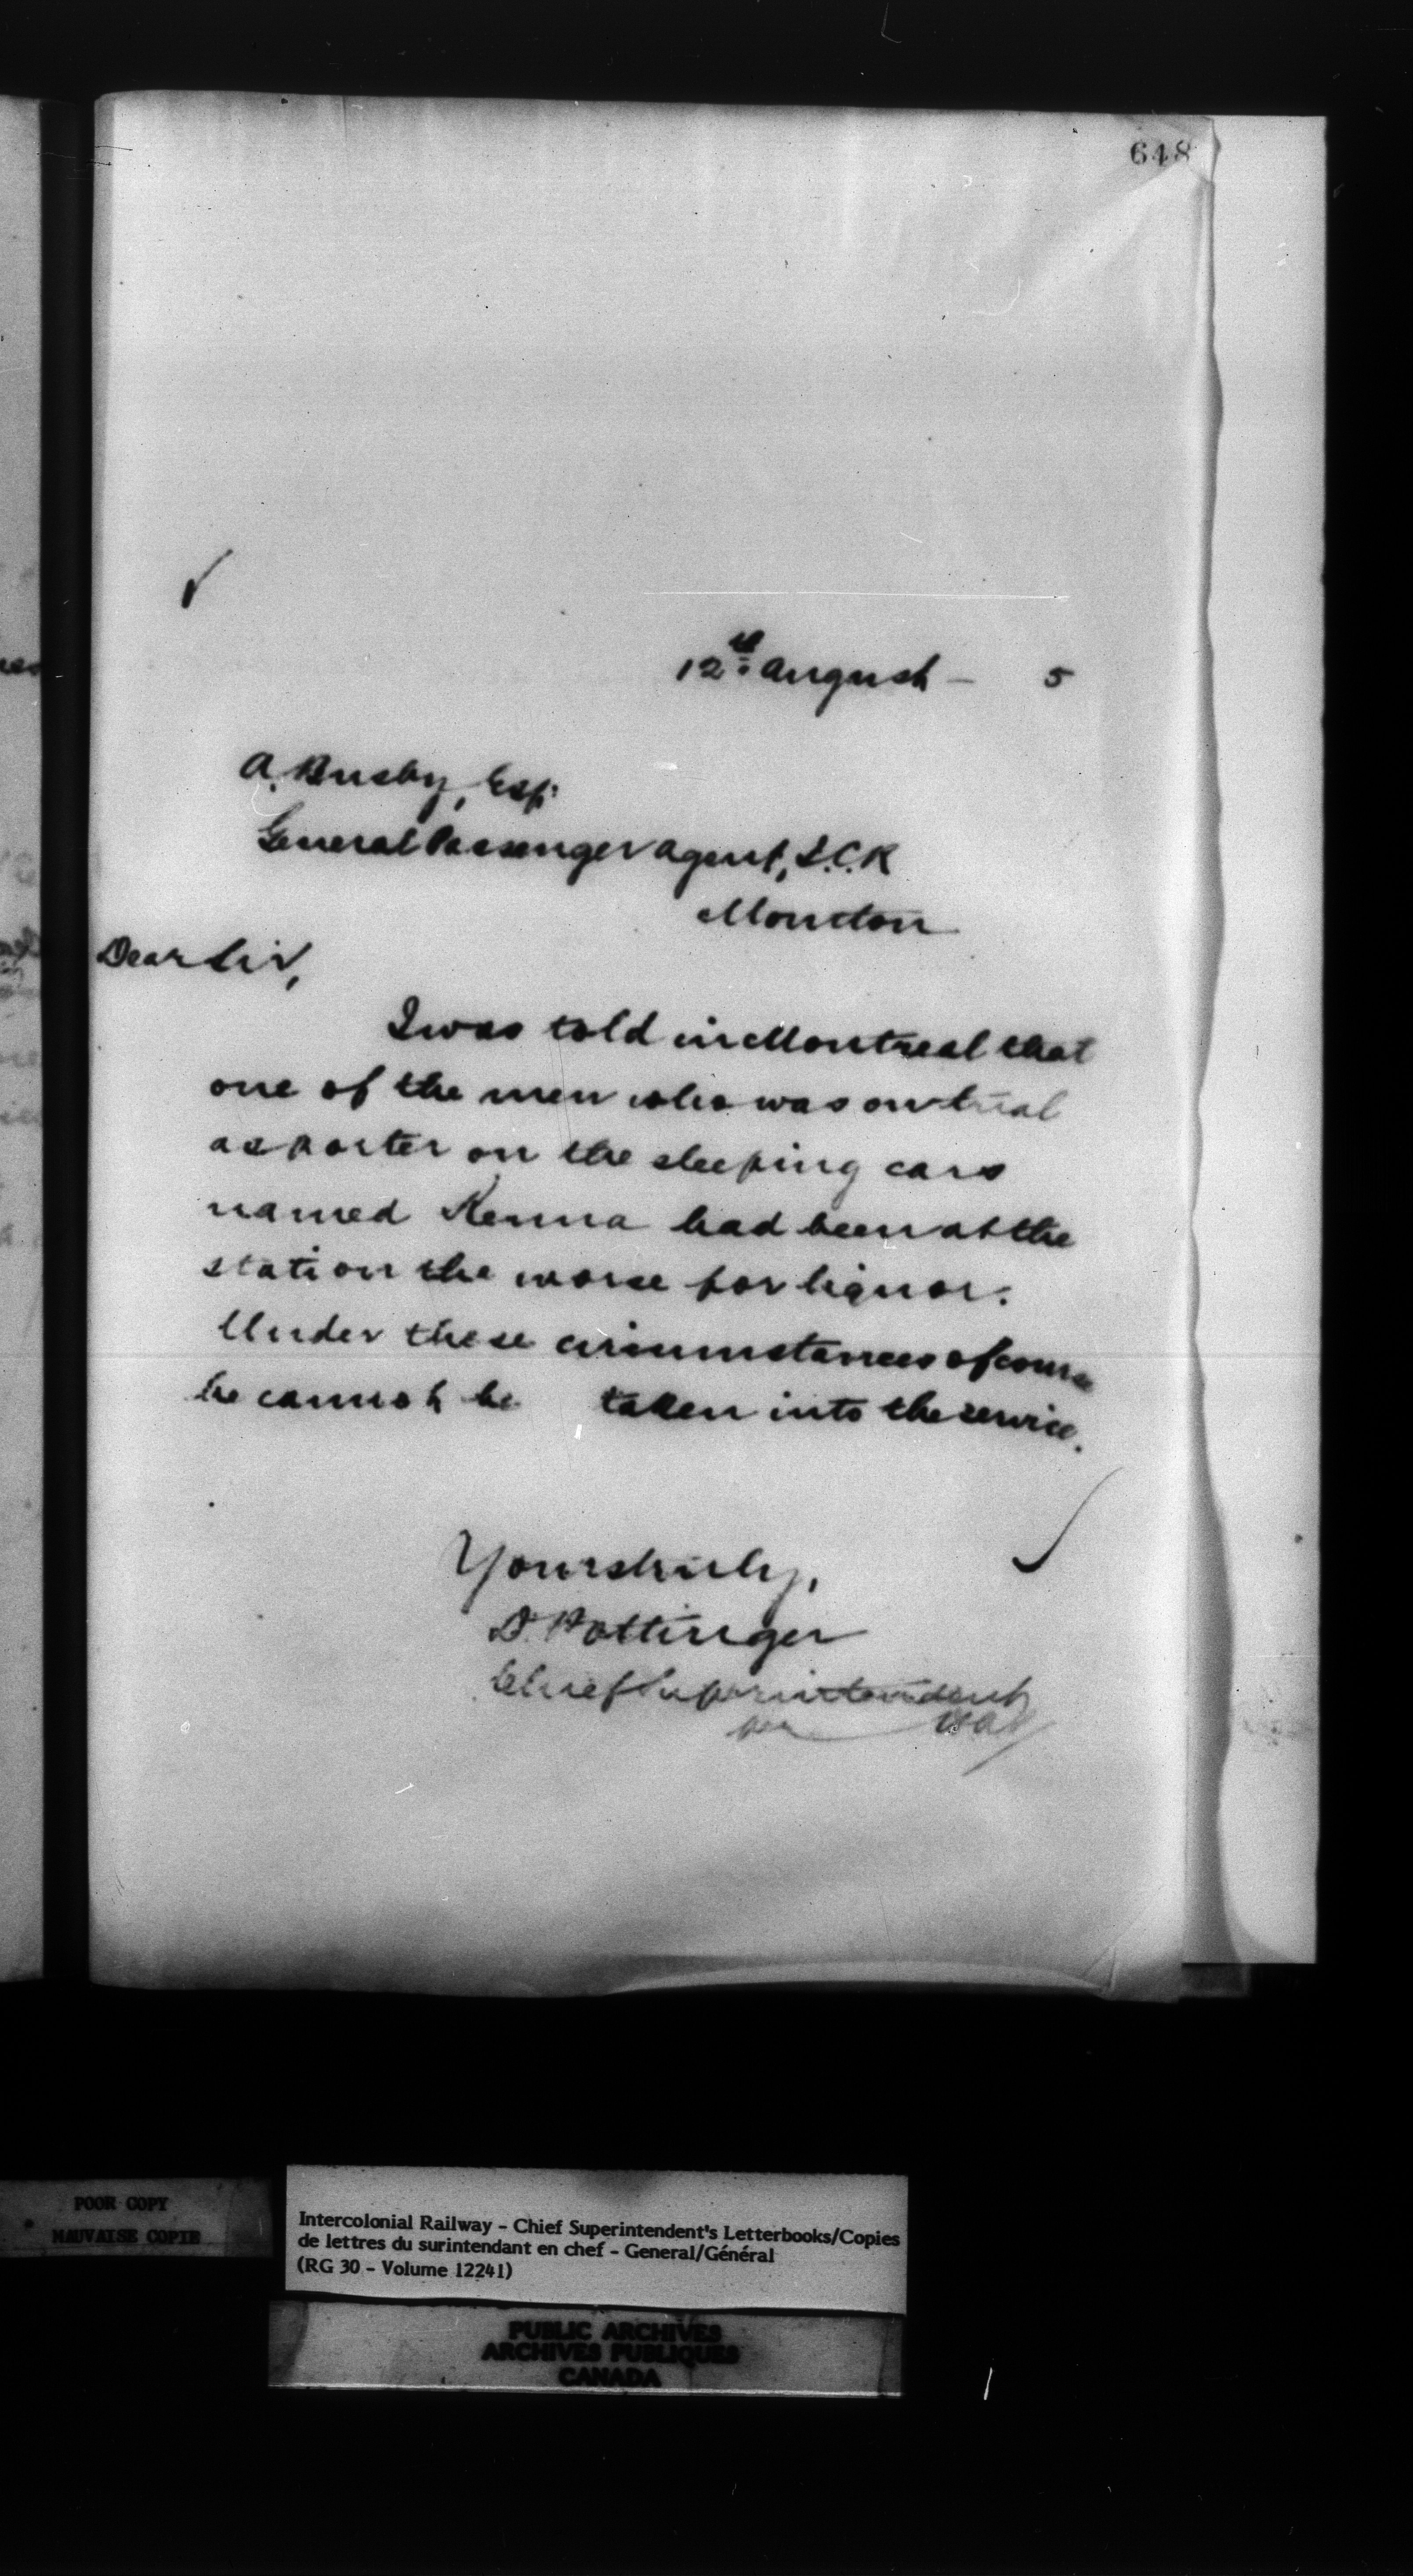 648
12th August – 5
A. Busby, Esq.
General Passenger Agent, I.C.R
Moncton
Dear Sir,
I was told in Montreal that
one of the men who was on trial
as porter on the sleeping cars
named Kenna had been at the
station the worse for liquor.
Under these circumstances of course
he cannot be taken into the service.
Yours truly,
D. Pottinger
Chief Superintendent
per
POOR COPY
MAUVAISE COPIE
Intercolonial Railway – Chief Superintendent's Letterbooks/Copies
de lettres du surintendant en chef – General/Général
(RG 30 – Volume 12241)
PUBLIC ARCHIVES
ARCHIVES PUBLIQUES
CANADA